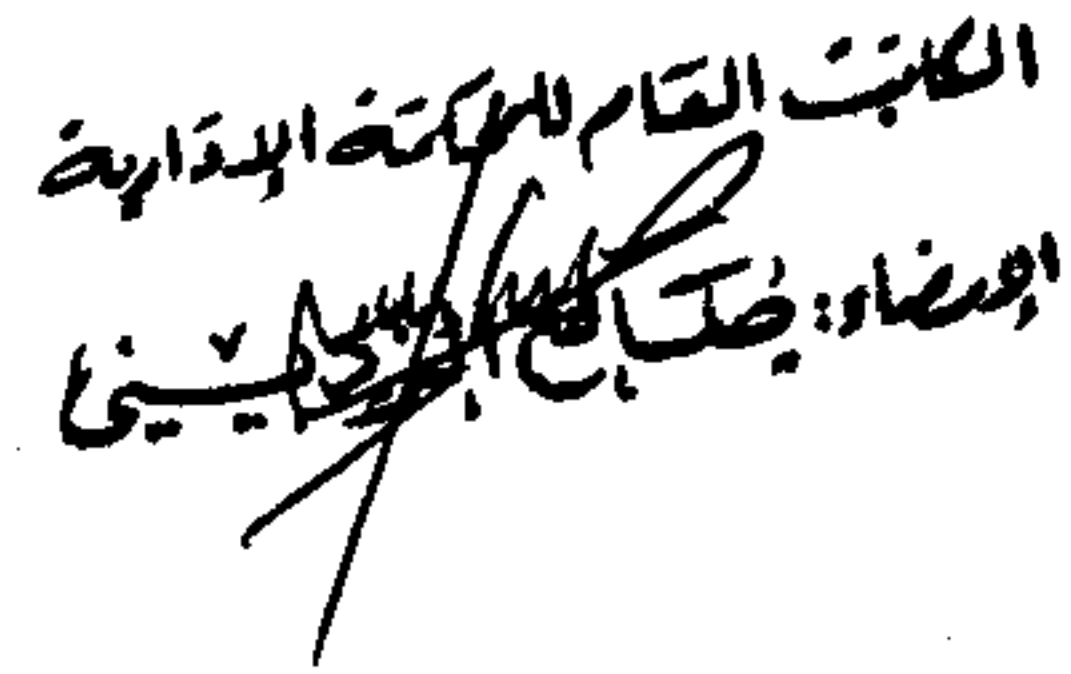 الكاتب العام للمحكمة الإدارية
الإمضاء: صباح